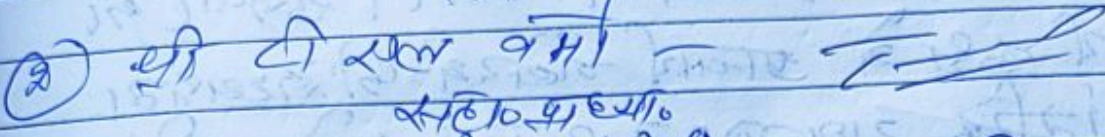 (2) श्री टी एल वर्मा —
सहा० प्राध्या०